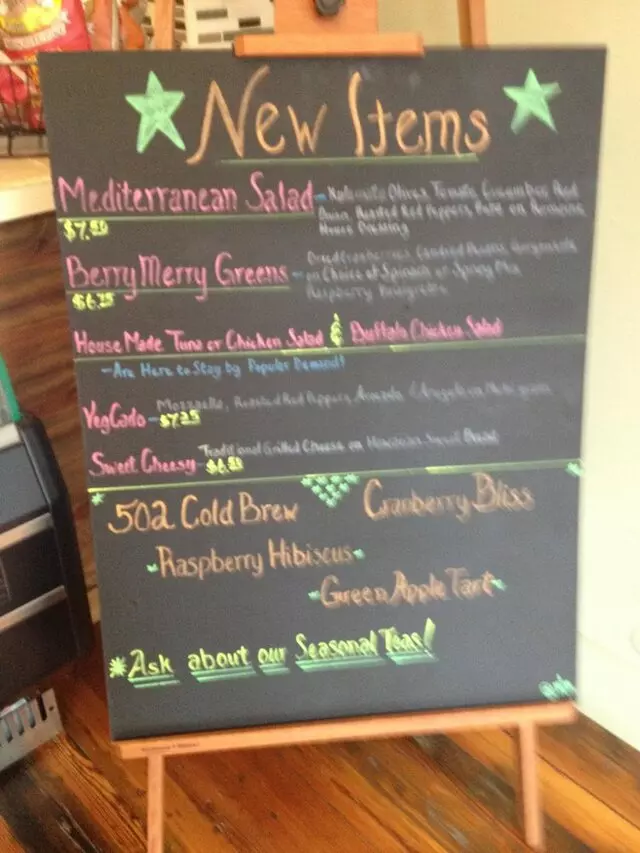 New Items
Mediterranean Salad - Kalamata Olives, Tomato, Cucumber, Red
Onion, Roasted Red Peppers, Feta on Romaine,
$7.50
House Dressing
Berry Merry Greens - Dried Cranberries, Candied Pecans,
on Choice of Spinach or Spring Mix
$6.25
Raspberry
House Made Tuna or Chicken Salad & Buffalo Chicken Salad
-Are Here to Stay by Popular Demand!
VegCado - Mozzarella, Roasted Red Peppers, Avocado,
$7.25
Sweet Cheesy - Traditional Grilled Cheese on Hawaiian Sweet Bread
502 Cold Brew
Cranberry Bliss
Raspberry Hibiscus
Green Apple Tart
*Ask about our Seasonal Teas!